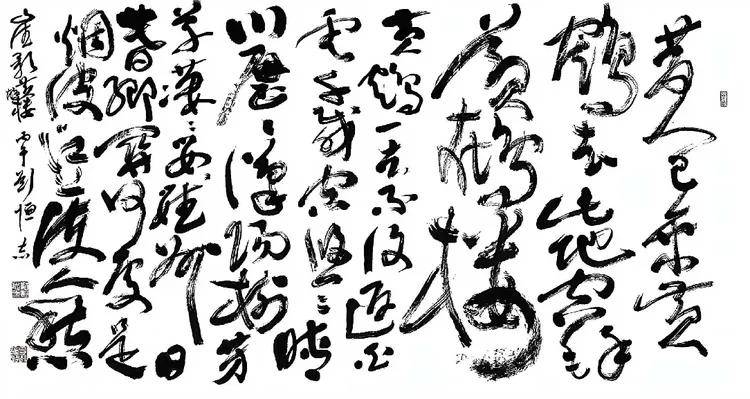 昔人已乘黄
鹤去此地空余
黄鹤楼
黄鹤一去不复返白
云千载空悠〻晴
川历〻汉阳树芳
草萋〻鹦鹉洲日
暮乡关何处是
烟波江上使人愁
崔颢黄鹤楼 刘恒志